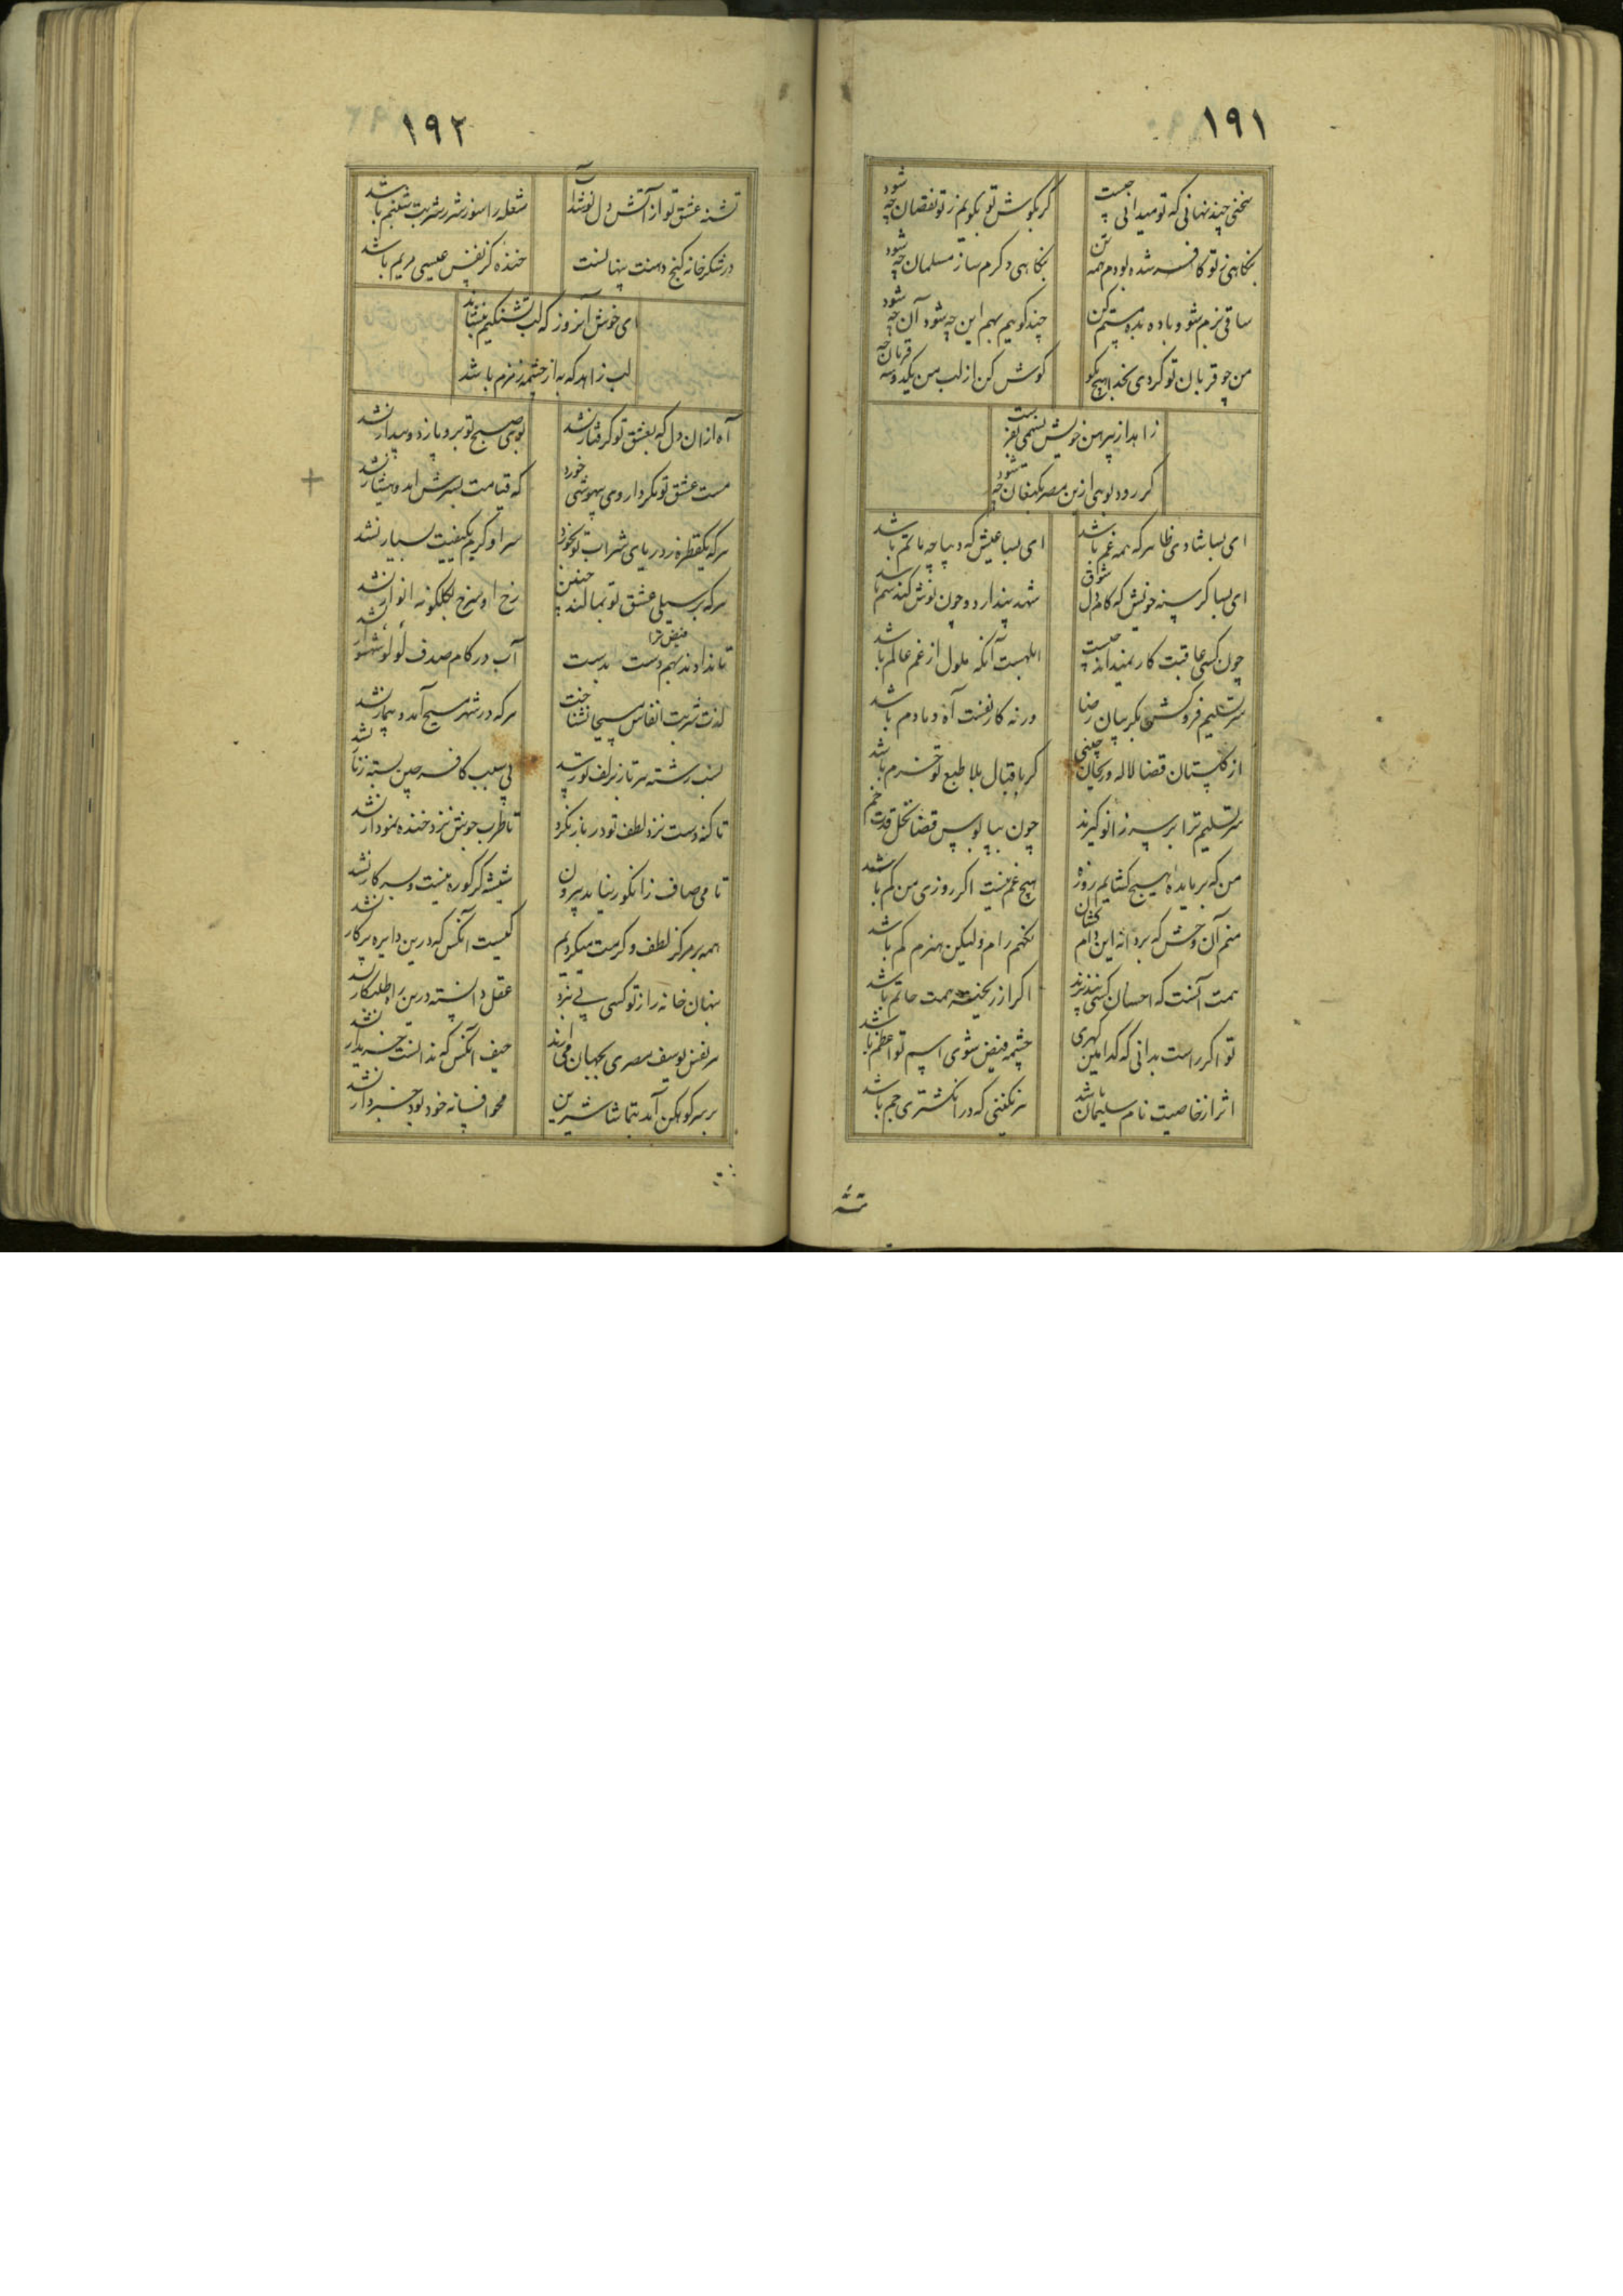 ۱۹۱
سخنی چند نهانی که تو میدانی چیست
کر بکوش تو بکویم ز تو نقصان چه شود
بنکاهی ز تو کافر شده بودم همه تن
بنکاهی دکرم ساز مسلمان چه شود
ساقی بزم شو و باده بده مستم کن
چند کوییم بهم این چه شود آن چه شود
من چو قربان تو کردم بخدا هیچ مکو
کوش کن از لب من یکدوسه قربان چه
زاهد از پیرهن خویش نسیمی بفرست
کر رود بوی ازین مصر بکنعان چه شود
ای بسا شادی ظاهر که همه غم باشد
ای بسا عیش که دیباچه ماتم باشد
ای بسا کرسنه خویش که کام دل شوق
شهد پندارد و چون نوش کند سم باشد
چون کسی عاقبت کار نمیداند چیست
ابلهست آنکه ملول از غم عالم باشد
سر تسلیم فروکش بکریبان رضا
ورنه کار نفست آه دمادم باشد
از کلستان قضا لاله و ریحان چینی
کر باقبال بلا طبع تو خرم باشد
سر تسلیم ترا بر سر زانو کیرند
چون بپا بوس قضا نخل قدت خم
من که بر مایده هیچ کشایم روزه
هیچ غم نیست اکر روزی من کم باشد
منم آن وحش که بر دانه این دام کشان
نکنم رام ولیکن هنرم کم باشد
همت آنست که احسان کسی نپذیرند
اکر از ریخته همت حاتم باشد
تو اکر راست بدانی که کدامین کهری
چشمه فیض شوی اسم تو اعظم باشد
اثر از خاصیت نام سلیمان باشد
هر نکینی که در انکشتری جم باشد
تشنه
۱۹۲
تشنه عشق تو از آتش دل نوشد آب
شعله را سوز شرر شربت شبنم باشد
در شکرخانه کنج دهنت پنهانست
خنده کز نفس عیسی مریم باشد
ای خوش آنروز که لب تشنکیم بنشاند
لب زاهد که به از چشمه زمزم باشد
آه ازان دل که بعشق تو کرفتار نشد
بوی صبح تو برو بازد و بیدار نشد
مست عشق تو مکر داروی بیهوشی خورد
که قیامت بسرش امد و هشیار نشد
هر که یکقطره ز دریای شراب تو نخورد
سر او کرم بکیفیت بسیار نشد
هر که بر سیلی عشق تو نمالند جبین
رخ او سرخ بکلکونه انوار نشد
تا ندادند بهم دست بدست فیض ترا
آب در کام صدف لولو شهوار نشد
لذت شربت انفاس مسیحا نشناخت
هر که در شهر مسیح آمد و بیمار نشد
نسب رشته هر تار بزلف تو رسد
بی سبب کافر چین بسته زنار نشد
تا کنه دست نزد لطف تو در باز نکرد
تا طرب جوش نزد خنده نمودار نشد
تا می صاف ز انکور نیاید بیرون
شیشه کر کوره نیست و سر کار نشد
همه بر مرکز لطف و کرمت میکردیم
کیست آنکس که درین دایره پرکار نشد
بنهان خانه راز تو کسی پی نبرد
عقل دانسته درین راه طلبکار نشد
هر نفس یوسف مصری بجهان می آرند
حیف آنکس که ندانست خریدار نشد
بر سر کوهکن آمد بتماشا شیرین
محو افسانه خود بود خبردار نشد